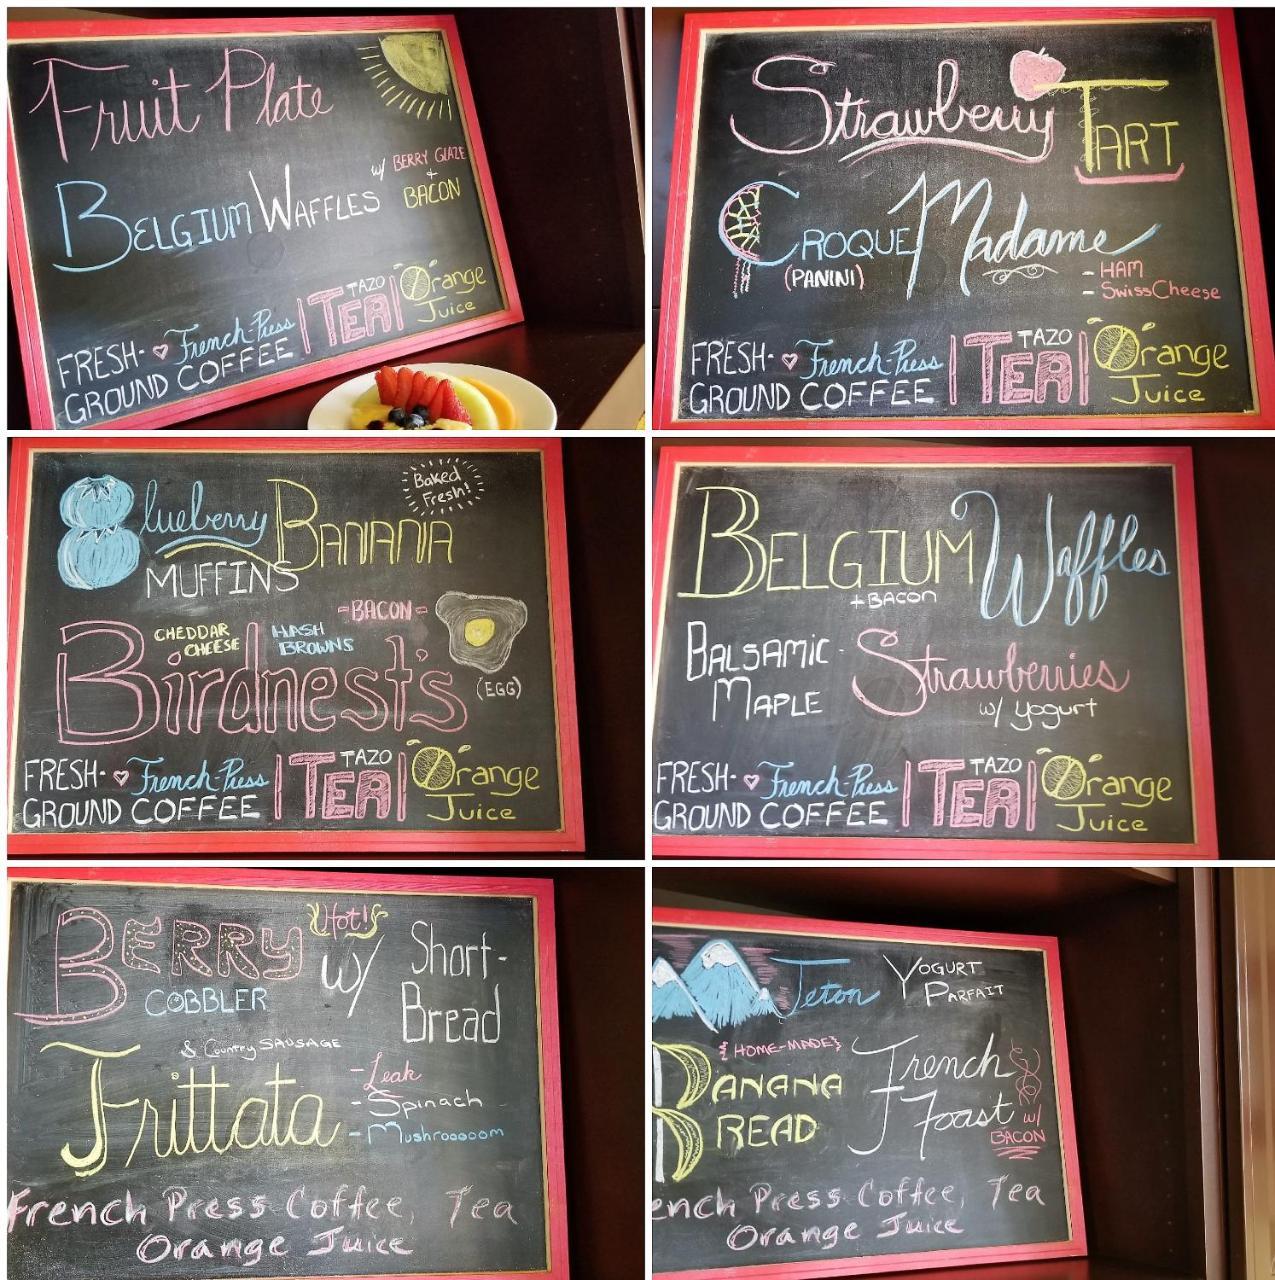 Fruit Plate
BELGIUM WAFFLES w/ BERRY GLAZE
+
BACON
FRESH- French-Press
GROUND COFFEE
TAZO
TEA
Orange
Juice
Strawberry TART
CROQUE Madame
(PANINI)
- HAM
- Swiss Cheese
FRESH- French-Press
GROUND COFFEE
TAZO
TEA
Orange
Juice
Baked
Fresh!
Blueberry BANANA
MUFFINS
-BACON-
CHEDDAR
CHEESE
HASH
BROWNS
Birdnest's
(EGG)
FRESH- French-Press
GROUND COFFEE
TAZO
TEA
Orange
Juice
BELGIUM Waffles
+ BACON
BALSAMIC-
MAPLE
Strawberries
w/ Yogurt
FRESH- French-Press
GROUND COFFEE
TAZO
TEA
Orange
Juice
Hot!
BERRY w/ Short-
COBBLER Bread
& Country SAUSAGE
Frittata
- Leak
- Spinach
- Mushrooooom
French Press Coffee, Tea
Orange Juice
Teton YOGURT
PARFAIT
{HOME-MADE}
BANANA
BREAD
French
Toast w/
BACON
ench Press Coffee, Tea
Orange Juice